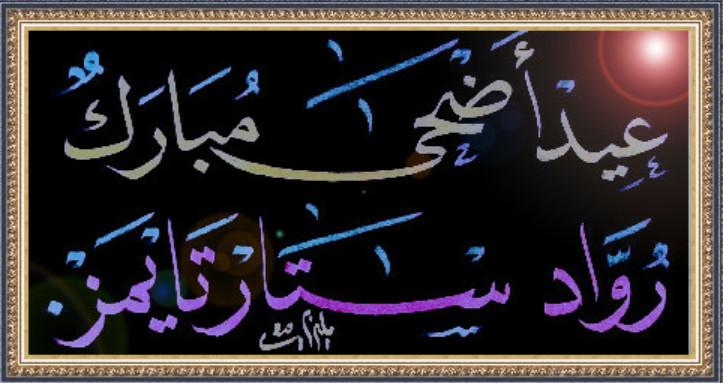 عِيدْ أَضْحَى مُبَارَكٌ
رُوَّاد سْتَارْتَايْمَزْ.